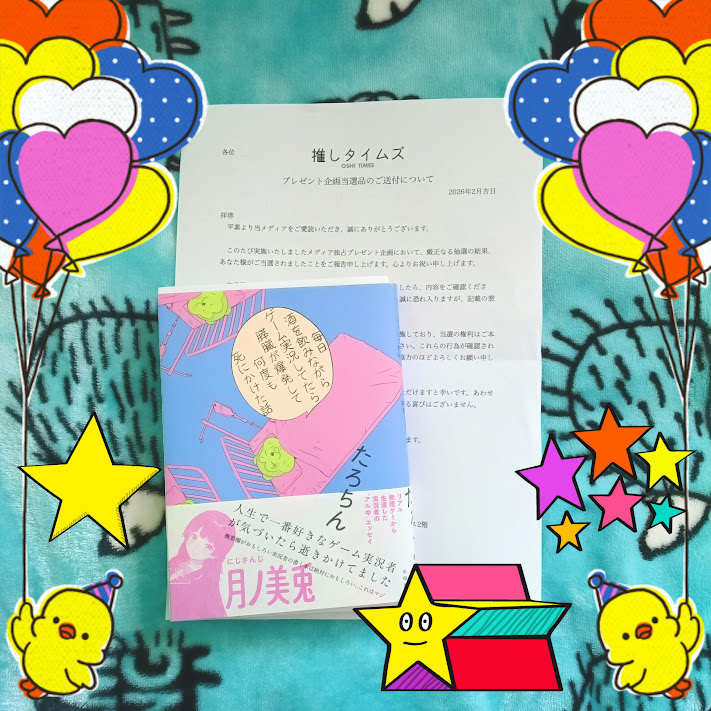 各位
推しタイムズ
OSHI TIMES
プレゼント企画当選品のご送付について
2026年2月吉日
拝啓
平素より当メディアをご愛読いただき、誠にありがとうございます。
このたび実施いたしましたメディア独占プレゼント企画において、厳正なる抽選の結果、
あなた様がご当選されましたことをご報告申し上げます。心よりお祝い申し上げます。
したら、内容をご確認くださ
誠に恐れ入りますが、記載の窓
施しており、当選の権利はご本
さい。これらの行為が確認され
協力のほどよろしくお願い申し
だけますと幸いです。あわせ
る喜びはございません。
ます。
2階
毎日
酒を飲みながら
ゲーム実況してたら
膵臓が爆発して
何度も
死にかけた話
たろちん
リアル
無理ゲーから
生還した
実況者の
アル中エッセイ
人生で一番好きなゲーム実況者
が気づいたら逝きかけてました
にじさんじ
月ノ美兎